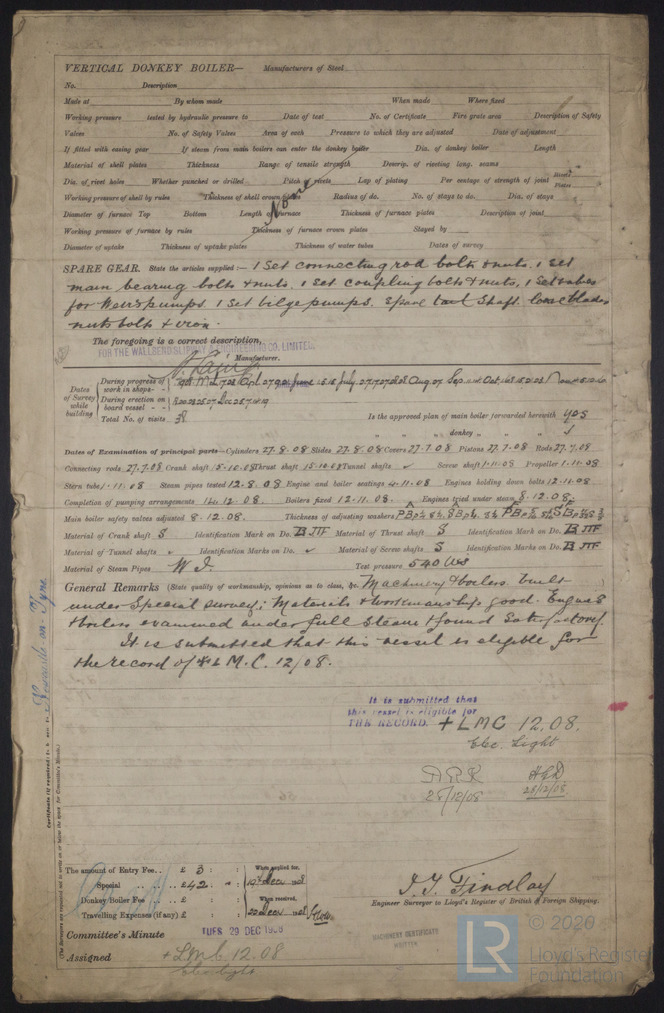 VERTICAL DONKEY BOILER— Manufacturers of Steel
No. Description
Made at By whom made When made Where fixed
Working pressure tested by hydraulic pressure to Date of test No. of Certificate Fire grate area Description of Safety
Valves No. of Safety Valves Area of each Pressure to which they are adjusted Date of adjustment
If fitted with easing gear If steam from main boilers can enter the donkey boiler Dia. of donkey boiler Length
Material of shell plates Thickness Range of tensile strength Descrip. of riveting long. seams
Dia. of rivet holes Whether punched or drilled Pitch of rivets Lap of plating Per centage of strength of joint Rivets Plates
Working pressure of shell by rules Thickness of shell crown plates Radius of do. No. of stays to do. Dia. of stays
None
Diameter of furnace Top Bottom Length of furnace Thickness of furnace plates Description of joint
Working pressure of furnace by rules Thickness of furnace crown plates Stayed by
Diameter of uptake Thickness of uptake plates Thickness of water tubes Dates of survey
SPARE GEAR. State the articles supplied:— 1 Set connecting rod bolts & nuts, 1 set
main bearing bolts & nuts, 1 set coupling bolts & nuts, 1 set valves
for Weirs pumps, 1 set bilge pumps, spare tail shaft, loose blades
nuts bolts & iron.
The foregoing is a correct description,
FOR THE WALLSEND SLIPWAY & ENGINEERING CO. LIMITED.
Manufacturer.
Dates of Survey while building
During progress of work in shops - -
During erection on board vessel - - -
Total No. of visits 38
Is the approved plan of main boiler forwarded herewith yes
" " " donkey " "
Dates of Examination of principal parts—Cylinders 27.8.08 Slides 27.8.08 Covers 27.7.08 Pistons 27.7.08 Rods 27.7.08
Connecting rods 27.7.08 Crank shaft 15.10.08 Thrust shaft 15.10.08 Tunnel shafts ✓ Screw shaft 1.11.08 Propeller 1.11.08
Stern tube 1.11.08 Steam pipes tested 12.8.08 Engine and boiler seatings 4.11.08 Engines holding down bolts 12.11.08
Completion of pumping arrangements 14.12.08. Boilers fixed 12.11.08. Engines tried under steam 8.12.08.
Main boiler safety valves adjusted 8.12.08. Thickness of adjusting washers
Material of Crank shaft S Identification Mark on Do. B JTF Material of Thrust shaft S Identification Mark on Do. B JTF
Material of Tunnel shafts ✓ Identification Marks on Do. ✓ Material of Screw shafts S Identification Marks on Do. B JTF
Material of Steam Pipes W I. Test pressure 540 lbs
General Remarks (State quality of workmanship, opinions as to class, &c. Machinery & boilers built
under Special survey; Materials & workmanship good. Engines
& boilers examined under full steam & found satisfactory.
It is submitted that this vessel is eligible for
the record of + L.M.C. 12/08.
It is submitted that
this vessel is eligible for
THE RECORD. + LMC 12.08.
Elec. Light
28/12/08
28/12/08
Newcastle-on-Tyne
Certificate (if required) to be sent to
(The Surveyors are requested not to write on or below the space for Committee's Minute.)
The amount of Entry Fee.. £ 3 : : When applied for,
Special .. .. £ 42 : : 19th Dec 1908
Donkey Boiler Fee .. £ : : When received,
Travelling Expenses (if any) £ : : 22 Dec 1908
J. T. Findlay
Engineer Surveyor to Lloyd's Register of British & Foreign Shipping.
Committee's Minute TUES 29 DEC 1908
MACHINERY CERTIFICATE
WRITTEN
Assigned + LMC 12.08
Elec light
LR
© 2020
Lloyd's Register
Foundation